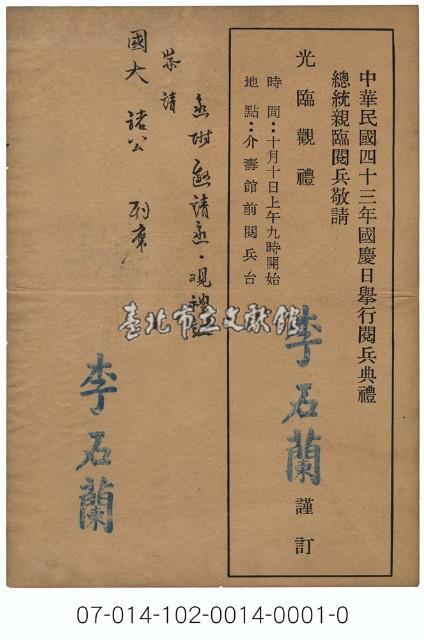 中華民國四十三年國慶日舉行閱兵典禮
總統親臨閱兵敬請
光臨觀禮
時間：十月十日上午九時開始
地點：介壽館前閱兵台
李石蘭 謹訂
邀請
請
國大 諸公
李石蘭
臺北市立文獻館
07-014-102-0014-0001-0